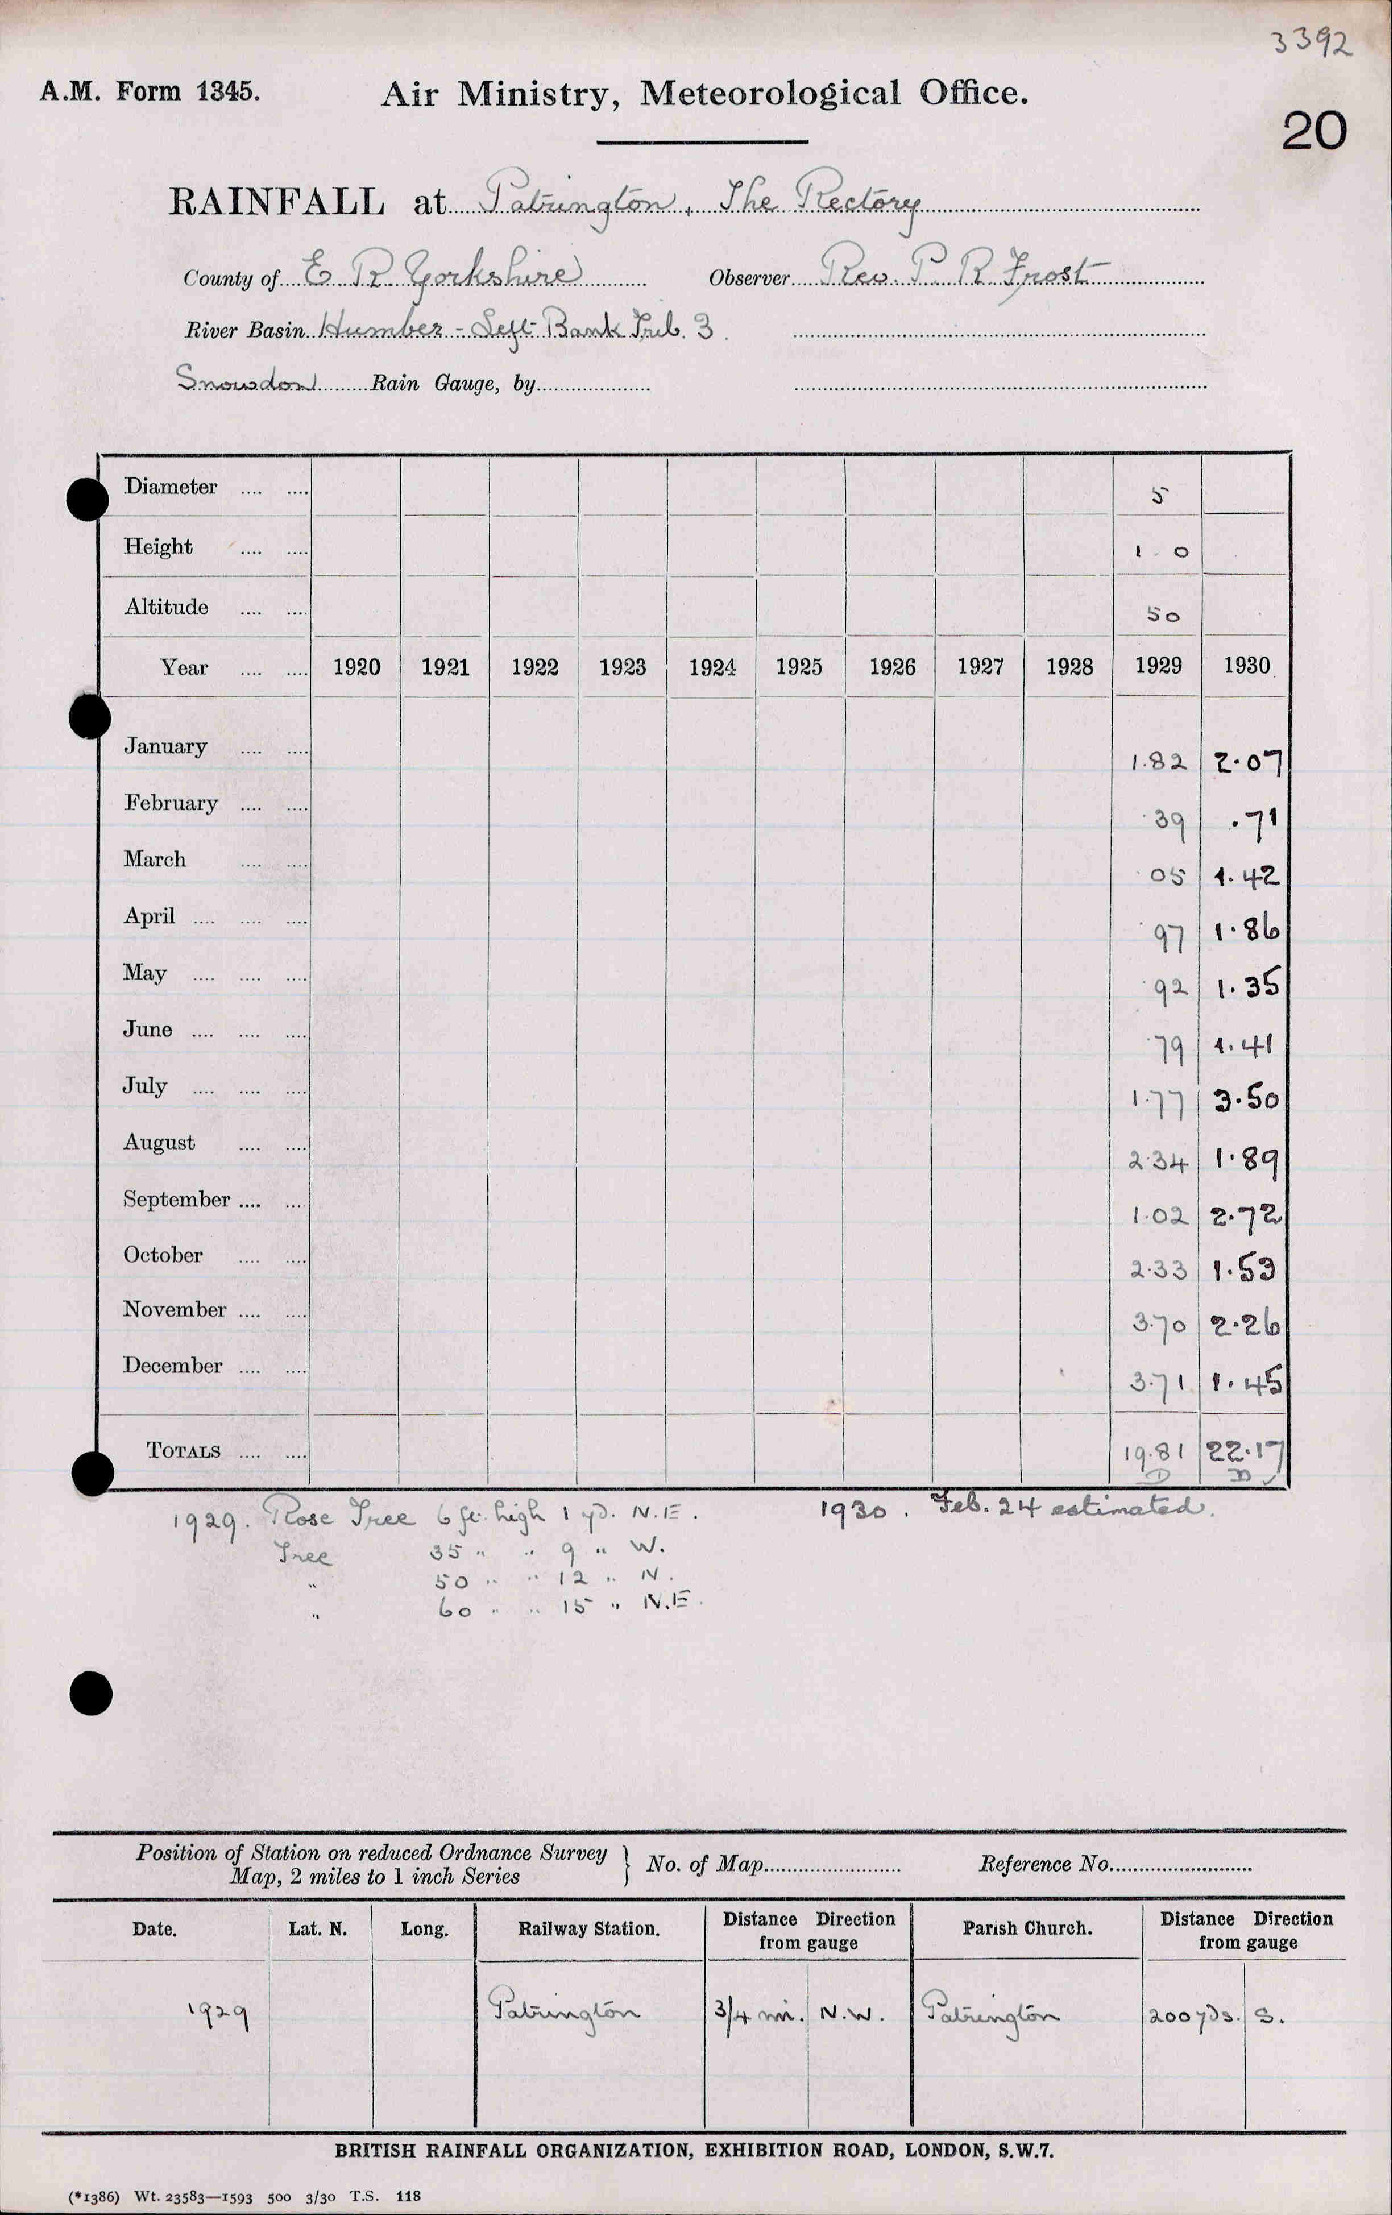 3392
A.M. Form 1345. Air Ministry, Meteorological Office.
20
RAINFALL at Patrington, The Rectory
County of E R Yorkshire Observer Rev. P. R. Frost
River Basin Humber - Left Bank Trib. 3.
Snowdon Rain Gauge, by
Diameter .... .... 5
Height .... .... 1 0
Altitude .... .... 50
Year .... .... 1920 1921 1922 1923 1924 1925 1926 1927 1928 1929 1930
January .... .... 1.82 2.07
February .... .... .39 .71
March .... .... .05 1.42
April .... .... .... .97 1.86
May .... .... .... .92 1.35
June .... .... .... .79 1.41
July .... .... .... 1.77 3.50
August .... .... 2.34 1.89
September .... .... 1.02 2.72
October .... .... 2.33 1.53
November .... .... 3.70 2.26
December .... .... 3.71 1.45
TOTALS .... .... 19.81 22.17
1929. Rose Tree 6 ft. high 1 yd. N.E. 1930. Feb. 24 estimated.
Tree 35 " " 9 " W.
" 50 " " 12 " N.
" 60 " " 15 " N.E.
Position of Station on reduced Ordnance Survey
Map, 2 miles to 1 inch Series } No. of Map Reference No.
Date. Lat. N. Long. Railway Station. Distance Direction from gauge Parish Church. Distance Direction from gauge
1929 Patrington 3/4 mi. N.W. Patrington 200 yds. S.
BRITISH RAINFALL ORGANIZATION, EXHIBITION ROAD, LONDON, S.W.7.
(*1386) Wt. 23583—1593 500 3/30 T.S. 118